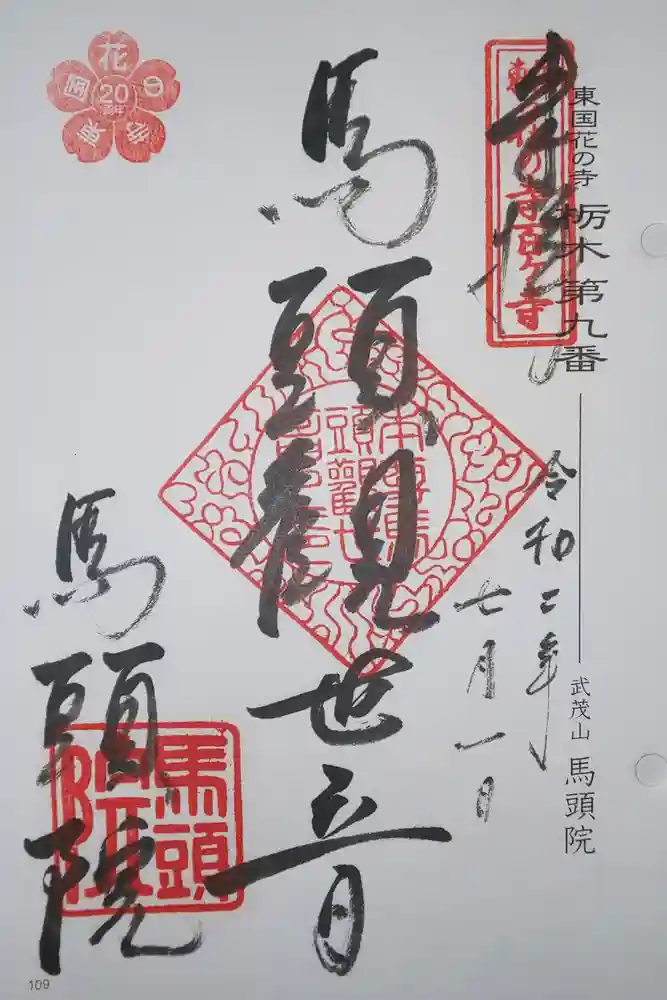 東国花の寺 栃木 第九番
武茂山 馬頭院
奉拝
令和二年
七月一日
馬頭観世音
馬頭院
馬頭院
20
109